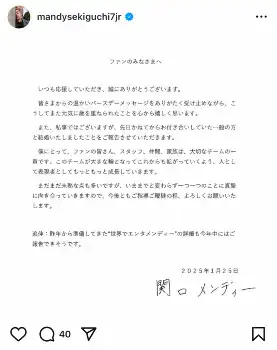 mandysekiguchi7jr
ファンのみなさまへ
いつも応援していただき、誠にありがとうございます。
皆さまからの温かいバースデーメッセージをありがたく受け止めながら、こ
うしてまた元気に歳を重ねられたことを心から嬉しく思います。
また、私事ではございますが、先日かねてからお付き合いしていた一般の方
と結婚いたしましたことをご報告させていただきます。
僕にとって、ファンの皆さん、スタッフ、仲間、家族は、大切なチームの一
員です。このチームが大きな輪となってこれからも拡がっていくよう、人とし
て表現者としてもっともっと成長していきます。
まだまだ未熟な点も多いですが、いままでと変わらず一つ一つのことに真摯
に向き合っていきますので、今後ともご指導ご鞭撻の程、よろしくお願いいた
します。
追伸：昨年から準備してきた“世界でエンタメンディー”の詳細も今年中にはご
報告できそうです。
2025年1月25日
関口 メンディー
40